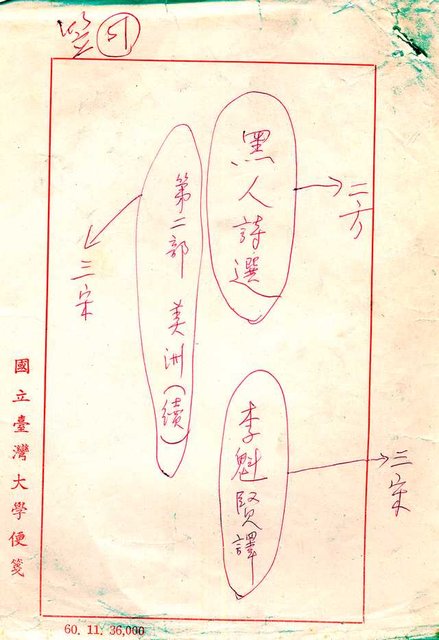 51
黑人詩選
二方
第二部 美洲(續)
三宋
李魁賢譯
三宋
國立臺灣大學便箋
60. 11. 36,000